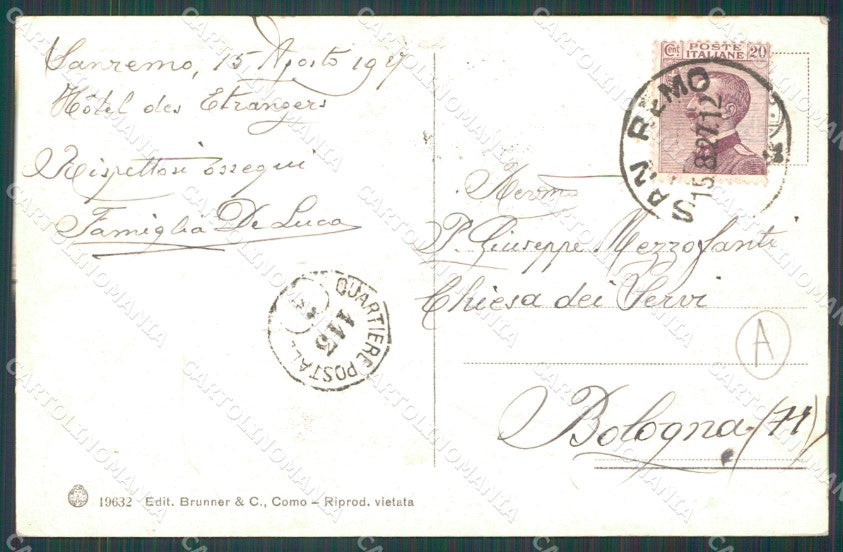 Sanremo, 15 Agosto 1927
Hôtel des Etrangers
Rispettosi ossequi
Famiglia De Luca
Cent POSTE ITALIANE 20
SAN REMO
15.8.27.12
P. Giuseppe Mezzofanti
Chiesa dei Servi
Bologna (71)
A
QUARTIERE POSTALE
113
19632 Edit. Brunner & C., Como – Riprod. vietata
CARTOLINOMANIA